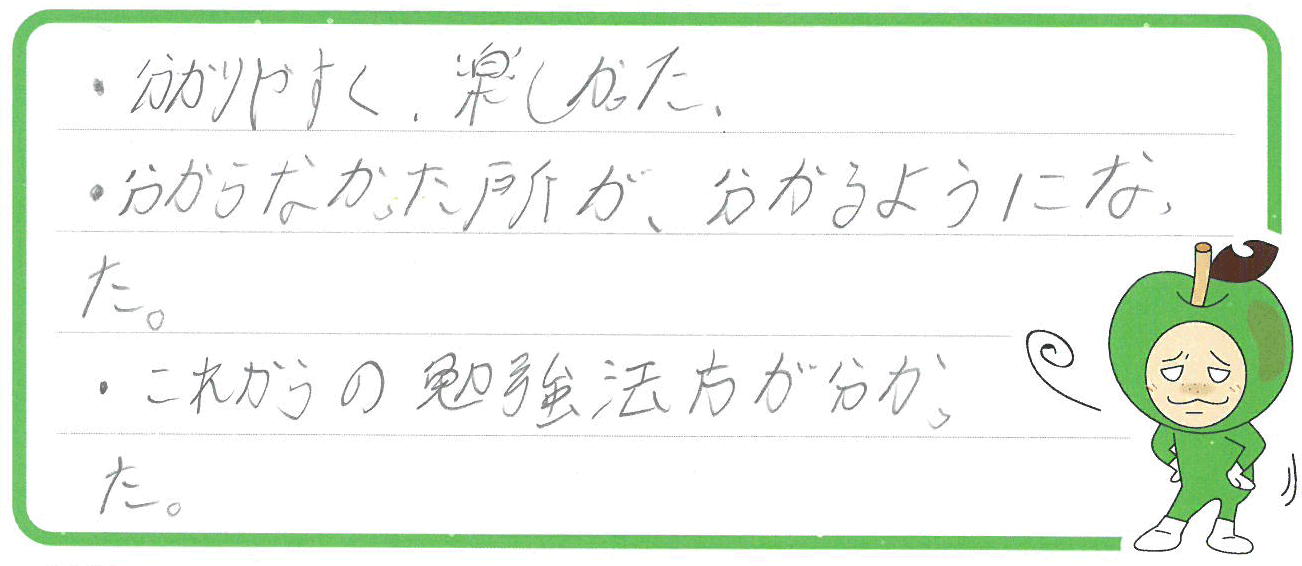 ・分かりやすく、楽しかった、
・分からなかった所が、分かるようになっ
た。
・これからの勉強法方が分かっ
た。